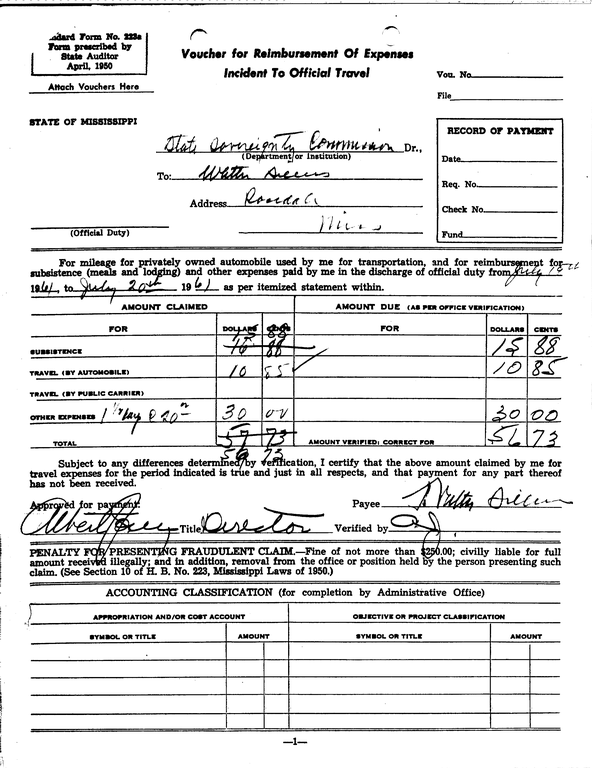 Standard Form No. 223a
Form prescribed by
State Auditor
April, 1950
Attach Vouchers Here
Voucher for Reimbursement Of Expenses
Incident To Official Travel
Vou. No.
File
STATE OF MISSISSIPPI
State Sovereignty Commission Dr.,
(Department or Institution)
To:
Address
Miss
(Official Duty)
RECORD OF PAYMENT
Date
Req. No.
Check No.
Fund
For mileage for privately owned automobile used by me for transportation, and for reimbursement for
subsistence (meals and lodging) and other expenses paid by me in the discharge of official duty from July
1961, to July 20th 1961 as per itemized statement within.
AMOUNT CLAIMED AMOUNT DUE (AS PER OFFICE VERIFICATION)
FOR DOLLARS CENTS FOR DOLLARS CENTS
15 88
SUBSISTENCE 16 88 15 88
TRAVEL (BY AUTOMOBILE) 10 85 10 85
TRAVEL (BY PUBLIC CARRIER)
OTHER EXPENSES 1 1/2 day @ 20 30 00 30 00
TOTAL 57 73 AMOUNT VERIFIED: CORRECT FOR 56 73
56 73
Subject to any differences determined by verification, I certify that the above amount claimed by me for
travel expenses for the period indicated is true and just in all respects, and that payment for any part thereof
has not been received.
Approved for payment: Payee
Title Director Verified by
PENALTY FOR PRESENTING FRAUDULENT CLAIM.—Fine of not more than $250.00; civilly liable for full
amount received illegally; and in addition, removal from the office or position held by the person presenting such
claim. (See Section 10 of H. B. No. 223, Mississippi Laws of 1950.)
ACCOUNTING CLASSIFICATION (for completion by Administrative Office)
APPROPRIATION AND/OR COST ACCOUNT OBJECTIVE OR PROJECT CLASSIFICATION
SYMBOL OR TITLE AMOUNT SYMBOL OR TITLE AMOUNT
—1—